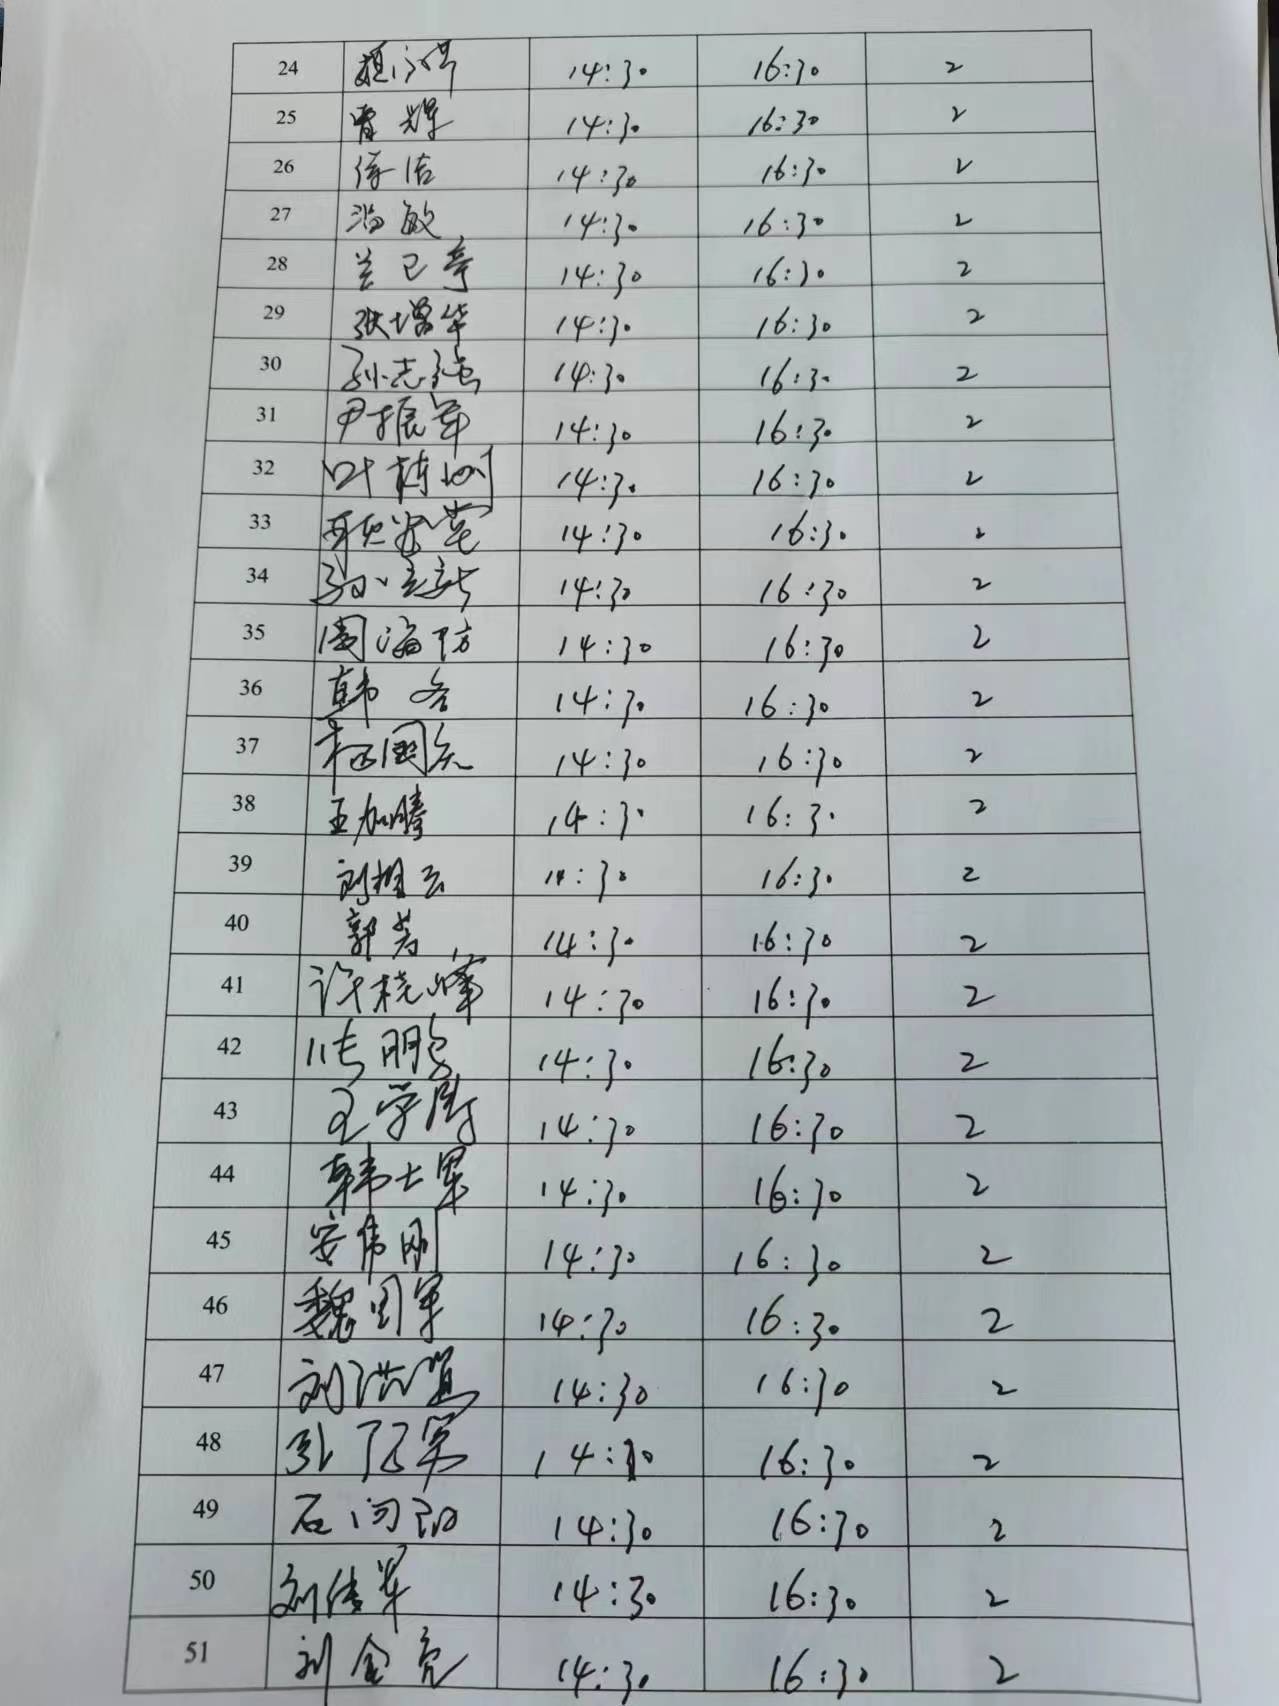 24 14:30 16:30 2
25 曾辉 14:30 16:30 2
26 徐洁 14:30 16:30 2
27 冯敏 14:30 16:30 2
28 兰已奇 14:30 16:30 2
29 张增华 14:30 16:30 2
30 孙志强 14:30 16:30 2
31 尹振军 14:30 16:30 2
32 叶 14:30 16:30 2
33 14:30 16:30 2
34 孙立新 14:30 16:30 2
35 周海防 14:30 16:30 2
36 韩冬 14:30 16:30 2
37 国 14:30 16:30 2
38 王加腾 14:30 16:30 2
39 刘相云 14:30 16:30 2
40 郭芳 14:30 16:30 2
41 许晓峰 14:30 16:30 2
42 张鹏 14:30 16:30 2
43 王学 14:30 16:30 2
44 韩士军 14:30 16:30 2
45 安伟刚 14:30 16:30 2
46 魏国军 14:30 16:30 2
47 刘洪 14:30 16:30 2
48 14:30 16:30 2
49 石 14:30 16:30 2
50 刘传军 14:30 16:30 2
51 刘金亮 14:30 16:30 2